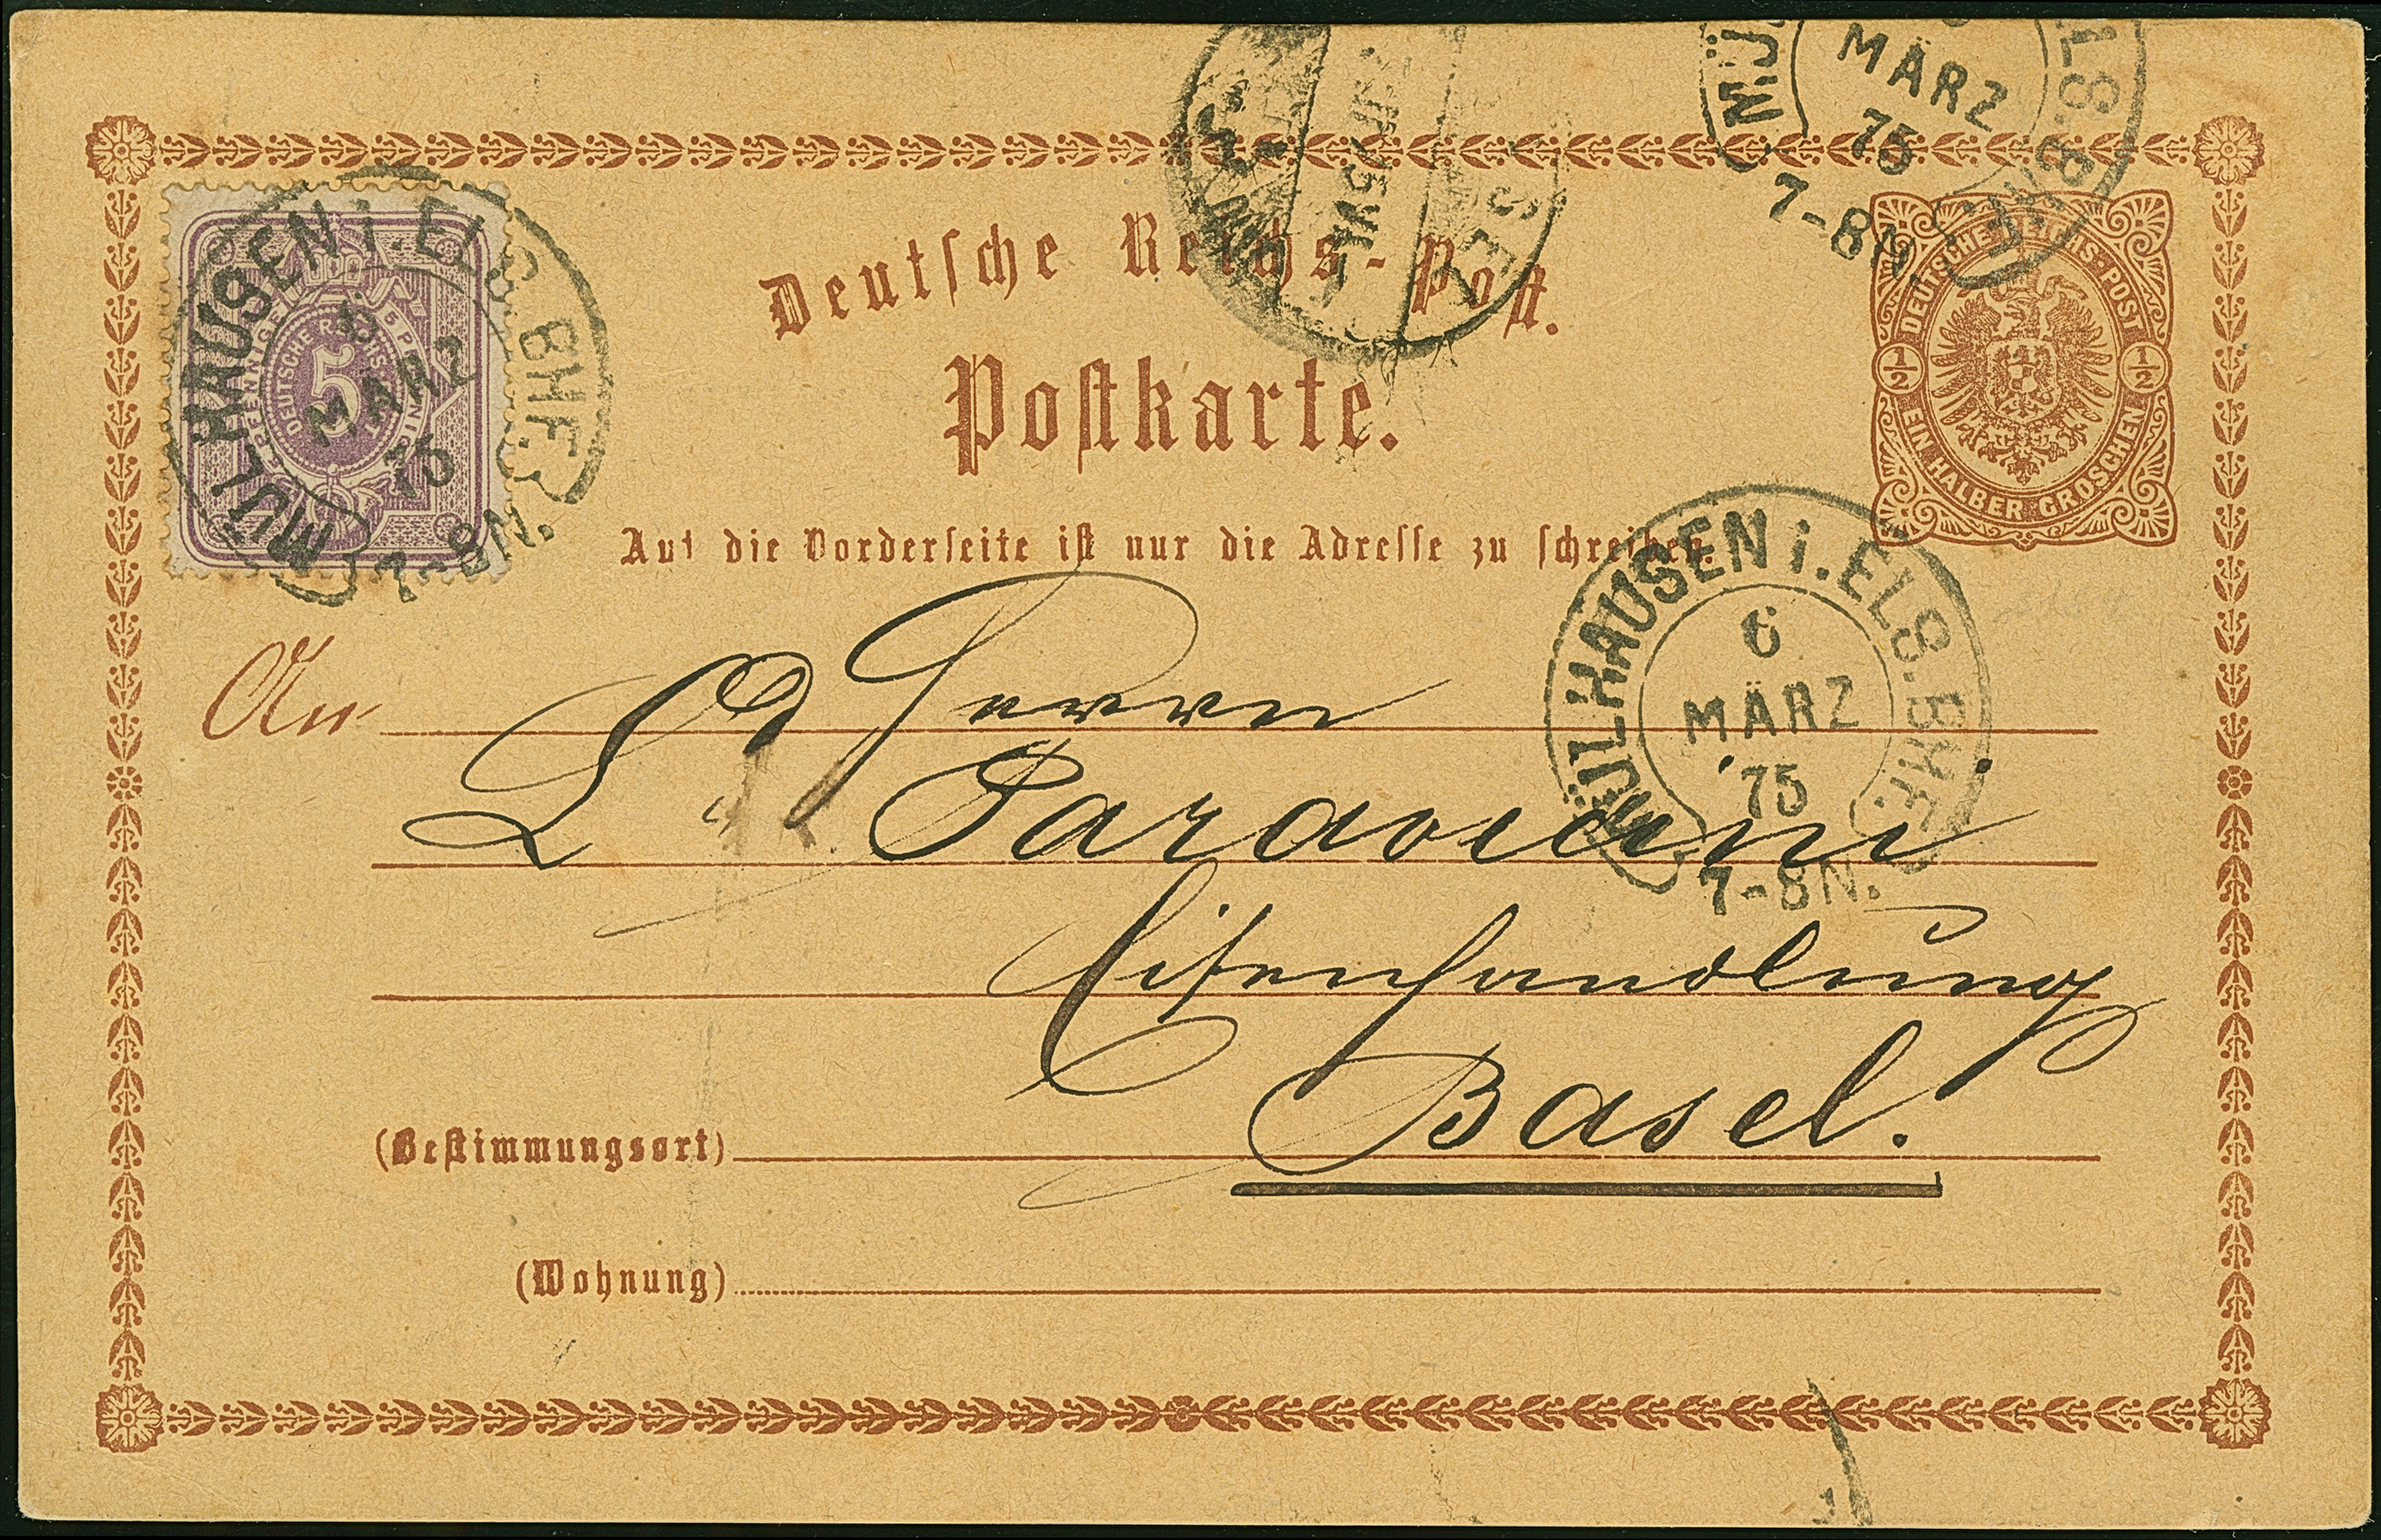 Deutsche Reichs-Post.
Postkarte.
Auf die Vorderseite ist nur die Adresse zu schreiben.
5 PFENNIGE
DEUTSCHE REICHS-POST
5
MÜLHAUSEN i. ELS. BHF.
6
MÄRZ
75
7-8N.
MÄRZ
75
7-8N.
DEUTSCHE REICHS-POST
1/2
1/2
EIN HALBER GROSCHEN
MÜLHAUSEN i. ELS. BHF.
6
MÄRZ
75
7-8N.
An Herrn
L. Paravicini
Eisenhandlung
(Bestimmungsort) Basel.
(Wohnung)